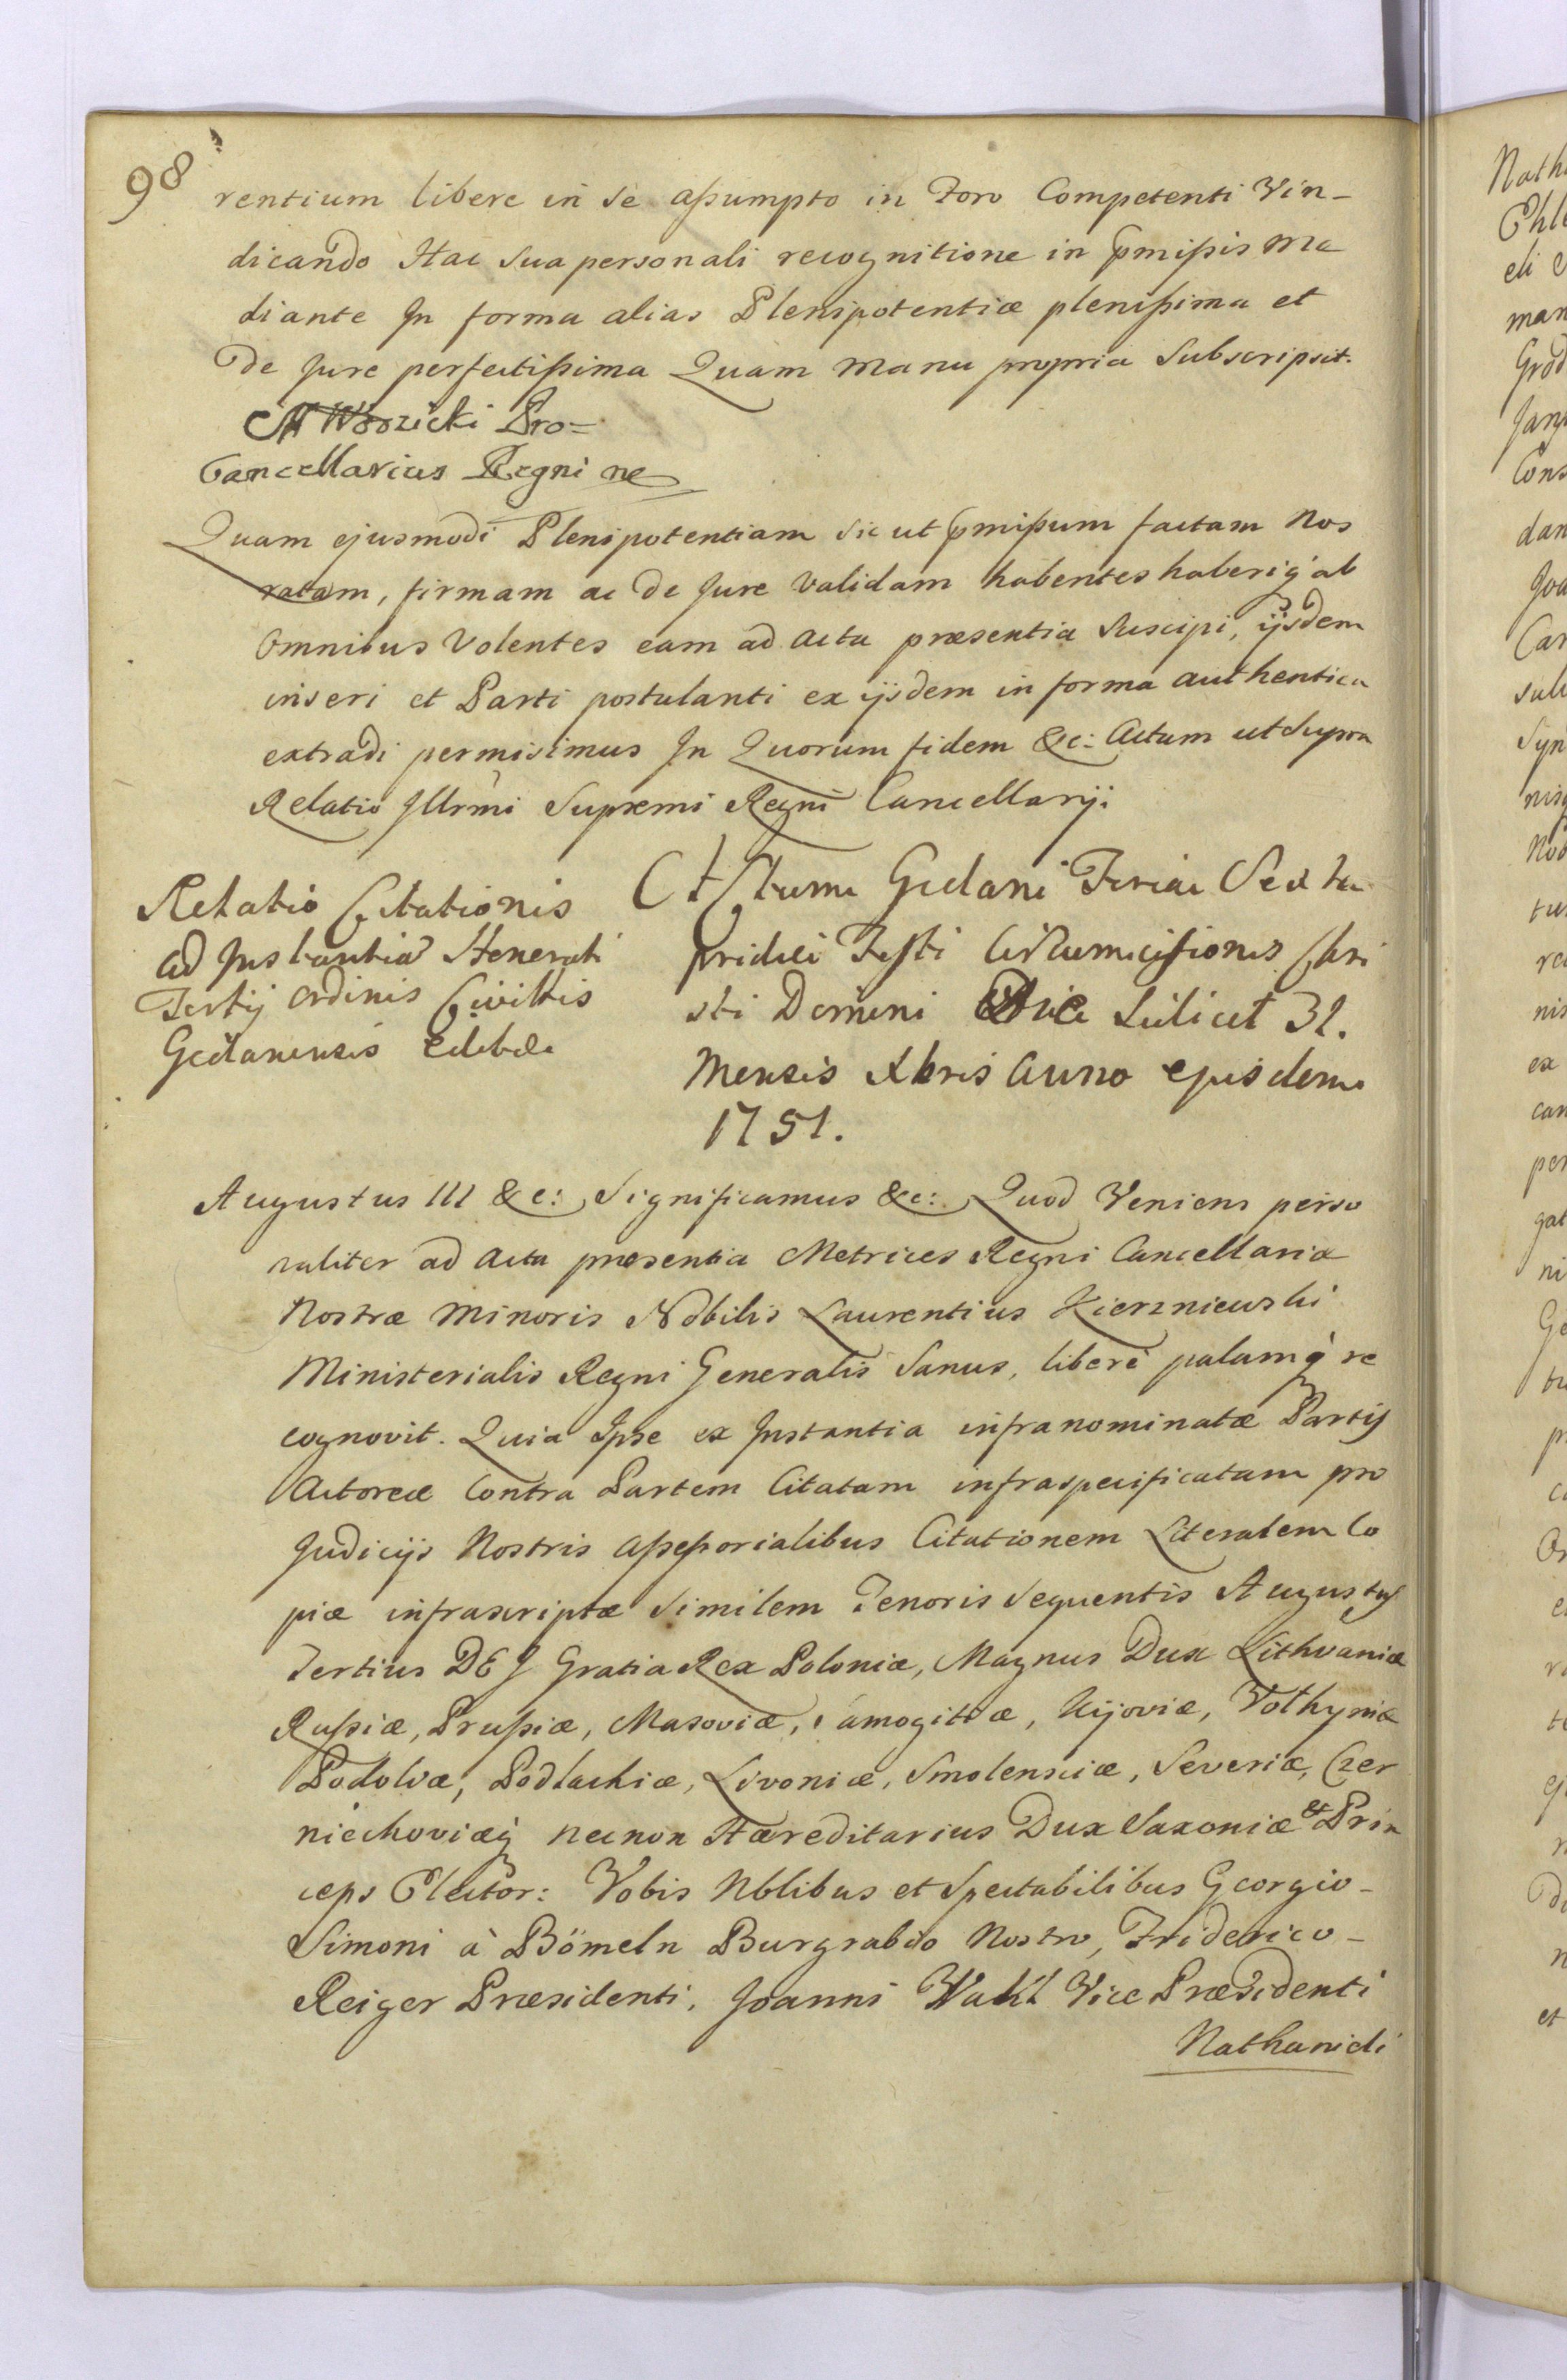 98
rentium libere in se aſsumpto in Foro Competenti Vin-
dicando Hac sua personali recognitione in pmiſsis me
diante In forma alias Plenipotentiæ pleniſsima et
De Jure perfectiſsima Quam manu propria Subscripsit.
Wodzicki Pro=
Cancellarius Regni
Quam ejusmodi Plenipotentiam sic ut pmiſsum factam Nos
ratam, firmam ac de Jure validam habentes haberiq́ ab
Omnibus Volentes eam ad Acta præsentia Suscipi, ijsdem
inseri et Parti postulanti ex ijsdem in forma authentica
extradi permisimus In Quorum fidem &c: Actum ut Supra
Relatio Illrmi Supremi Regni Cancellarij.
Relatio Citationis
ad Instantia Honorati
Tertij Ordinis Civitatis
Gedanensis
Actum Gedani Feria Sexta
pridie Festi Circumcisionis Chri
sti Domini Die Scilicet 31.
Mensis Xbris Anno ejusdem
1751.
Augustus III &c: Significamus &c: Quod Veniens perso
naliter ad Acta præsentia Metrices Regni Cancellariæ
Nostræ Minoris Nobilis Laurentius Kierzniewski
Ministerialis Regni Generalis Sanus, liberè palamq́ re
cognovit. Quia Ipse ex Instantia infranominatæ Partis
Actoreæ Contra Partem Citatam infraspecificatam pro
Judicijs Nostris Aſseſsorialibus Citationem Literalem Co
piæ infrascriptæ Similem Tenoris Sequentis Augustus
Tertius DEJ Gratia Rex Poloniæ, Magnus Dux Lithvaniæ
Ruſsiæ, Pruſsiæ, Masoviæ, Samogitiæ, Kijoviæ, Volhyniæ
Podoliæ, Podlachiæ, Livoniæ, Smolensciæ, Severiæ, Czer
niechoviæq́ necnon Hæreditarius Dux Saxoniæ & Prin
ceps Elector: Vobis Nblibus et Spectabilibus Georgio-
Simoni à Bömeln Burgrabio Nostro, Friderico-
Reiger Præsidenti, Joanni Wahl Vice Præsidenti
Nathanieli